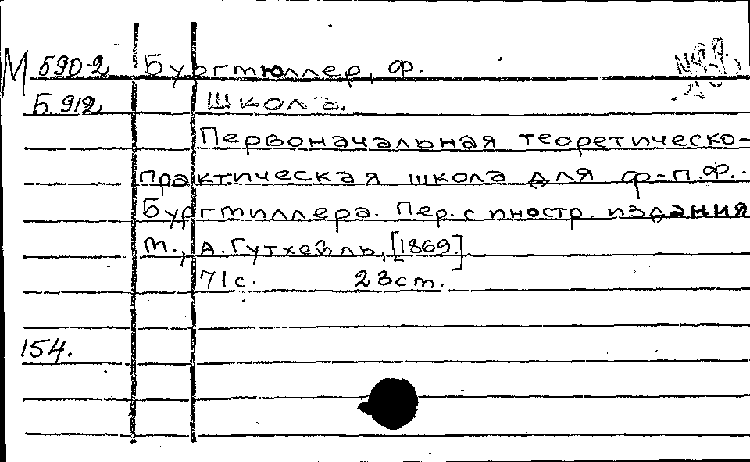 М 590-2 Бургмюллер, Ф.
Б.912 Школа.
Первоначальная теоретическо-
практическая школа для ф-п. Ф.
Бургмиллера. Пер. с иностр. издания
М., А. Гутхейль, [1869.]
71с. 23см.
154.